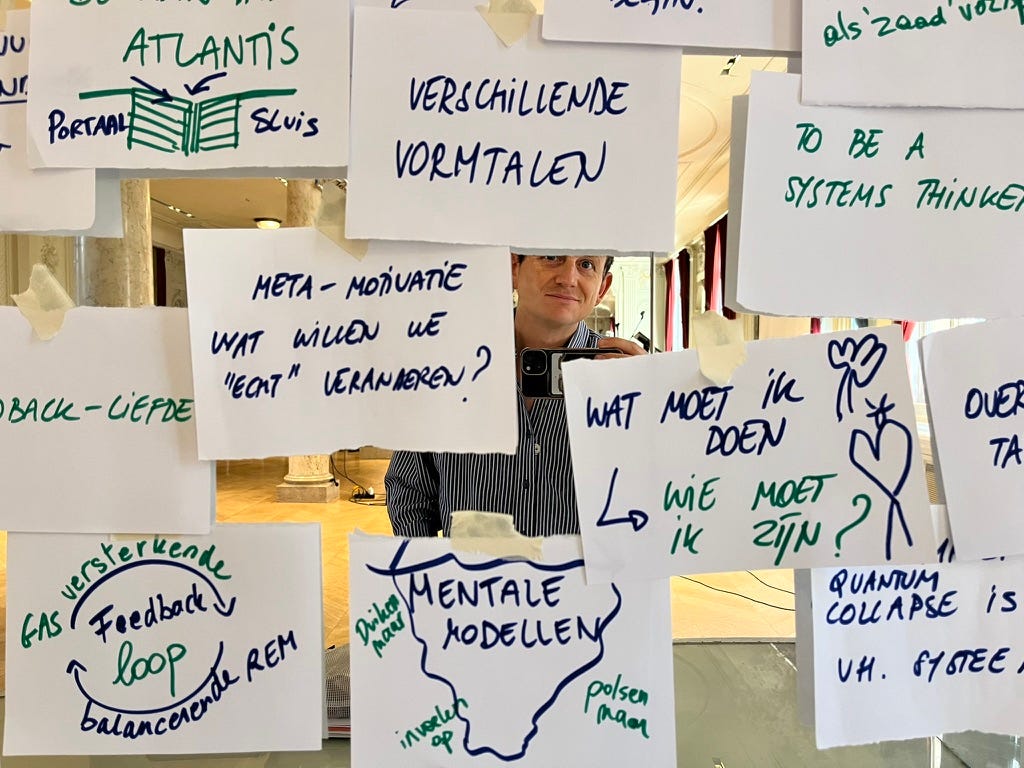 ATLANTIS
PORTAAL
SLUIS
VERSCHILLENDE
VORMTALEN
als 'zaad'
TO BE A
SYSTEMS THINKER
META-MOTIVATIE
WAT WILLEN WE
"ECHT" VERANDEREN?
BACK-LIEFDE
WAT MOET IK
DOEN
WIE MOET
IK ZIJN?
OVER
TA
GAS versterkende
Feedback
loop
balancerende REM
MENTALE
MODELLEN
invoelen
op
polsen
naar
QUANTUM
COLLAPSE IS
VH. SYSTEE